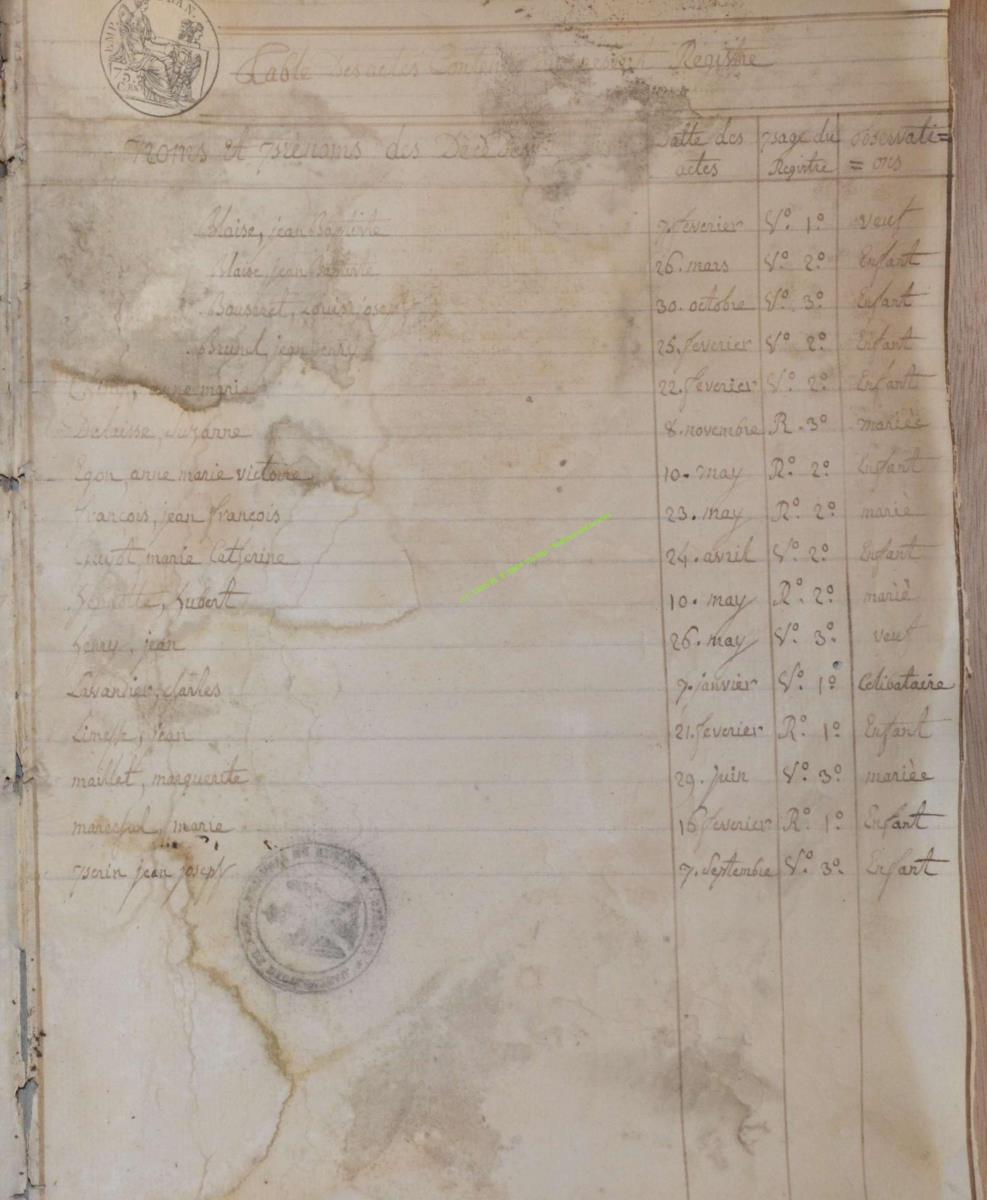 EMP. FRAN.
75 C.
Table des actes Contenus au présent Régistre
Noms et prénoms des Décédés Datte des actes page du Régistre observati= = ons
Blaise, jean Baptiste 7. feverier V.º 1º veuf
Blaise, jean Baptiste 26. mars V.º 2º Enfant
Louis joseph 30. octobre V.º 3º Enfant
Brunel, jean henry 25. feverier V.º 2º Enfant
anne marie 22. feverier V.º 2º Enfant
Delaisse, Suzanne 8. novembre R. 3º mariée
Egon, anne marie victoire 10. may R.º 2º Enfant
françois, jean françois 23. may R.º 2º marié
Guyot, marie Catherine 24. avril V.º 2º Enfant
hubert 10. may R.º 2º marié
henry, jean 26. may V.º 3º veuf
Lavandier, charles 7. janvier V.º 1º Celibataire
jean 21. feverier R.º 1º Enfant
maillet, marguerite 29. juin V.º 3º mariée
marechal, marie 16 feverier R.º 1º Enfant
perin jean joseph 7. Septembre V.º 3º Enfant